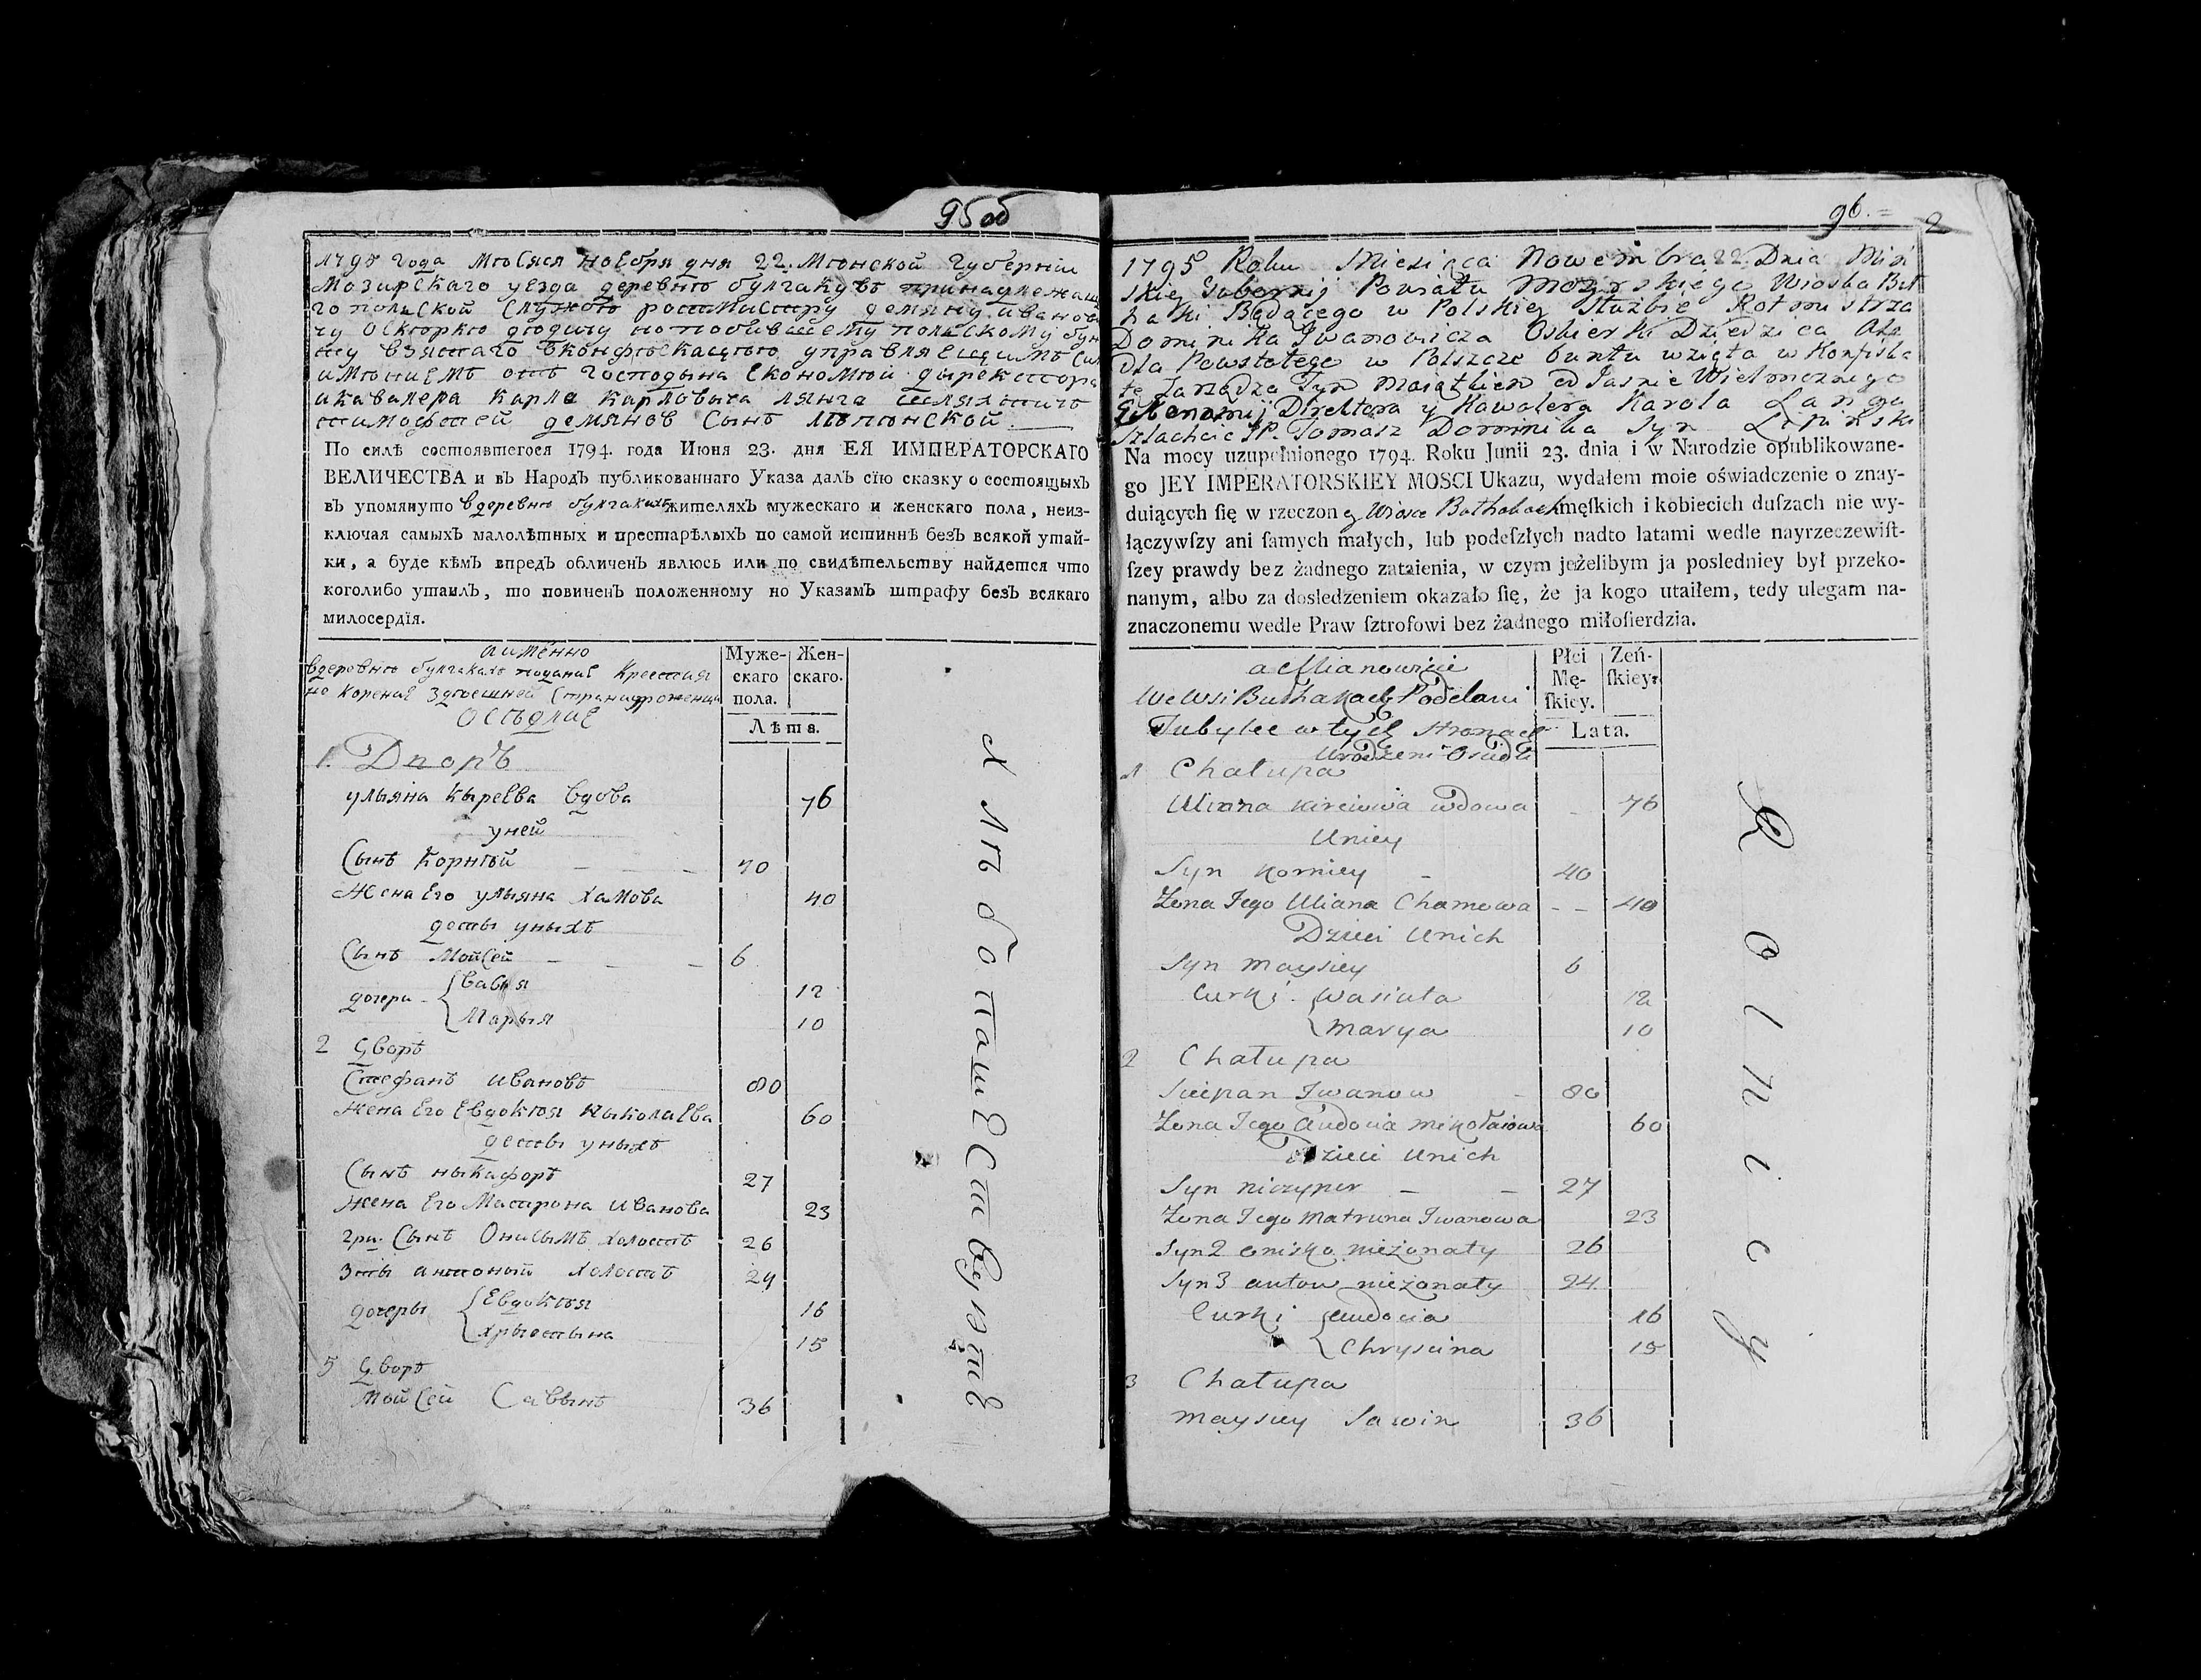 95 об
1795 года месяся ноебря дня 22. Минской Губернии
Мозирскаго уезда деревню булгакувъ принадлежащ
го полской службе ротмистру демяну иванови
чу Оскерко дедичу но побившему полскому бун
ту взятаго вконфискацию управляещимъ сим
имениемъ отъ господына Економии дыректора
икавалера Карла Карловыча лянга шляхтичъ
тимофтей демяновъ Сынъ липинской
По силѣ состоявшегося 1794. года Июня 23. дня ЕЯ ИМПЕРАТОРСКАГО
ВЕЛИЧЕСТВА и въ Народъ публикованнаго Указа далъ сїю сказку о состоящыхъ
въ упомянуто вдеревню булгакахъ жителяхъ мужескаго и женскаго пола, неиз-
ключая самыхъ малолѣтных и престарѣлыхъ по самой истиннѣ безъ всякой утай-
ки, а буде кѣмъ впредъ обличенъ явлюсь или по свидѣтельству найдется что
коголибо утаилъ, то повиненъ положенному по Указамъ штрафу безъ всякаго
милосердїя.
аимѣнно
вдеревню булгакахъ поданые Крестяя
не кореные здешней Страни рожени
Оседлие
Муже-
скаго
пола.
Жен-
скаго.
Лѣта.
1. Дворъ
ульяна Кырева вдова 76
уней
Сынъ Корнѣй 40
Жена Его ульяна Хамова 40
деты уныхъ
Сынъ Мойсей 6
дочери Васыя 12
Марыя 10
2 Дворъ
Стефанъ ивановъ 80
Жена Его Евдокия Ныколаева 60
деты уныхъ
Сынъ ныкафоръ 27
Жена Его Матрона иванова 23
2ри. Сынъ Онисымъ холостъ 26
3ты антоный холостъ 24
дочеры Евдокия 16
хрыстына 15
3 Дворъ
Мойсей Саввынъ 36
Хлѣбопашествуютъ
96. 2
1795 Roku Miesięca Nowembra 22 Dnia Miń
skiey Gubernij Powiatu Mozyrskiego Wioska Buł
haki Będącego w Polskiey służbie Rotmistrza
Dominika Jwanowicza Oskierki Dziedzica Ale
dla Powstałego w Polszcze bantu wzięta w Konfiska
tę Zarządza Tym Maiątkiem od Jaśnie Wielmożnego
Ekonomij Direktora y Kawalera Karola Langa
Szlachcic JP. Tomasz Dominika Syn Lipiński
Na mocy uzupełnionego 1794. Roku Junii 23. dnia i w Narodzie opublikowane-
go JEY IMPERATORSKIEY MOSCI Ukazu, wydałem moie oświadczenie o znay-
duiących ſię w rzeczoney Wiosce Bułhakach męſkich i kobiecich duſzach nie wy-
łączywſzy ani ſamych małych, lub podeſzłych nadto latami wedle nayrzeczewiſt-
ſzey prawdy bez żadnego zataienia, w czym jeżelibym ja posledniey był przeko-
nanym, albo za dosledzeniem okazało ſię, że ja kogo utaiłem, tedy ulegam na-
znaczonemu wedle Praw ſztrofowi bez żadnego miłoſierdzia.
a Mianowicie
We Wsi Bułhakach Poddani
Tubylce w tych stronach
Urodzeni Osiedli
Płci
Mę-
ſkiey.
Zeń-
ſkiey.
Lata.
1 Chałupa
Uliana Kireiowa wdowa 76
Uniey
Syn Korniey 40
Żona Jego Uliana Chamowa 40
Dzieci Unich
Syn Maysiey 6
Curki Wasiuta 12
Marya 10
2 Chałupa
Sciepan Jwanow 80
Żona Jego Audocia Mikołaiowa 60
Dzieci Unich
Syn Niczyper 27
Żona Jego Matruna Jwanowa 23
Syn 2 onisko nieżonaty 26
Syn 3 anton nieżonaty 24
Curki Audocia 16
Chryscina 15
3 Chałupa
Maysiey Sawin 36
Rolnicy